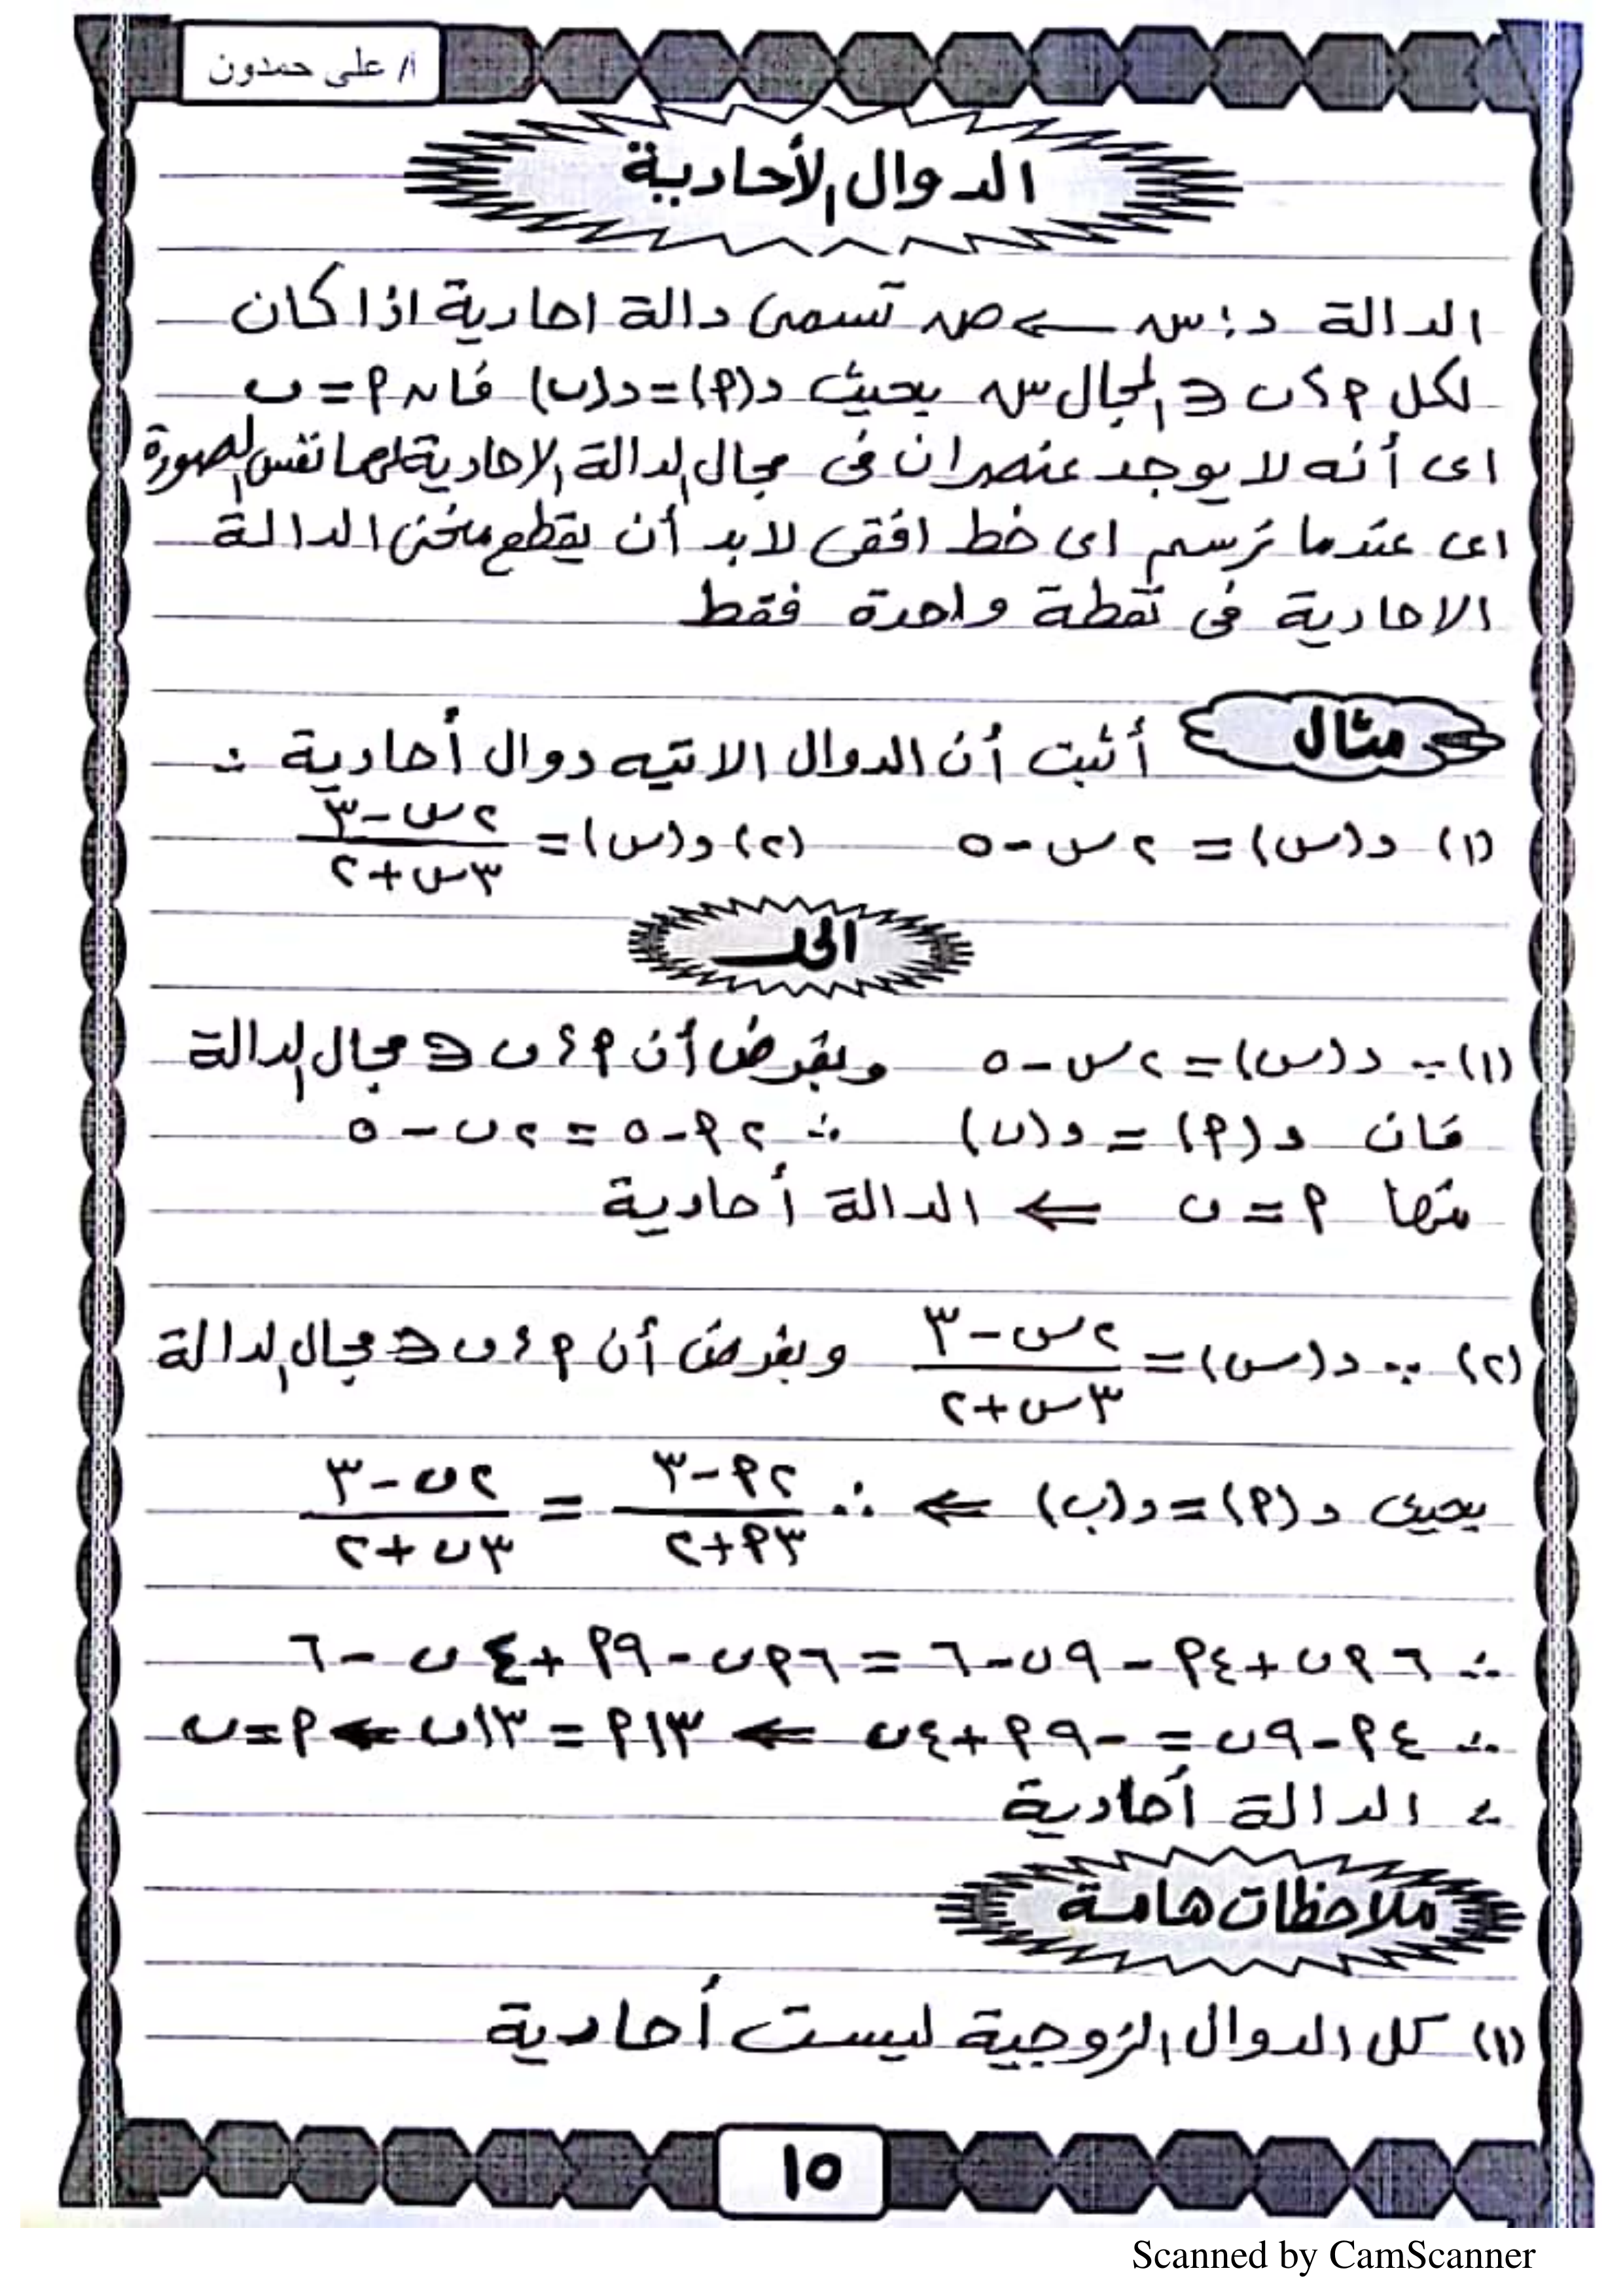 أ/ على حمدون
الدوال الأحادية
الدالة د: س ← ص تسمى دالة احادية اذا كان
لكل أ، ب ∈ المجال س بحيث د(أ) = د(ب) فان أ = ب
اى أنه لا يوجد عنصران فى مجال الدالة الاحادية لهما نفس الصورة
اى عندما نرسم اى خط افقى لابد أن يقطع منحنى الدالة
الاحادية فى نقطة واحدة فقط
مثال أثبت أن الدوال الاتيه دوال أحادية :
(١) د(س) = ٢س - ٥ (٢) د(س) = (٢س - ٣)/(٣س + ٢)
الحل
(١) ∵ د(س) = ٢س - ٥ وبفرض أن أ، ب ∈ مجال الدالة
فان د(أ) = د(ب) ∴ ٢أ - ٥ = ٢ب - ٥
منها أ = ب ⇐ الدالة أحادية
(٢) ∵ د(س) = (٢س - ٣)/(٣س + ٢) وبفرض أن أ، ب ∈ مجال الدالة
بحيث د(أ) = د(ب) ⇐ ∴ (٢أ - ٣)/(٣أ + ٢) = (٢ب - ٣)/(٣ب + ٢)
∴ ٦أب + ٤أ - ٩ب - ٦ = ٦أب - ٩أ + ٤ب - ٦
∴ ٤أ - ٩ب = -٩أ + ٤ب ⇐ ١٣أ = ١٣ب ⇐ أ = ب
∴ الدالة أحادية
ملاحظات هامة
(١) كل الدوال الزوجية ليست أحادية
١٥
Scanned by CamScanner